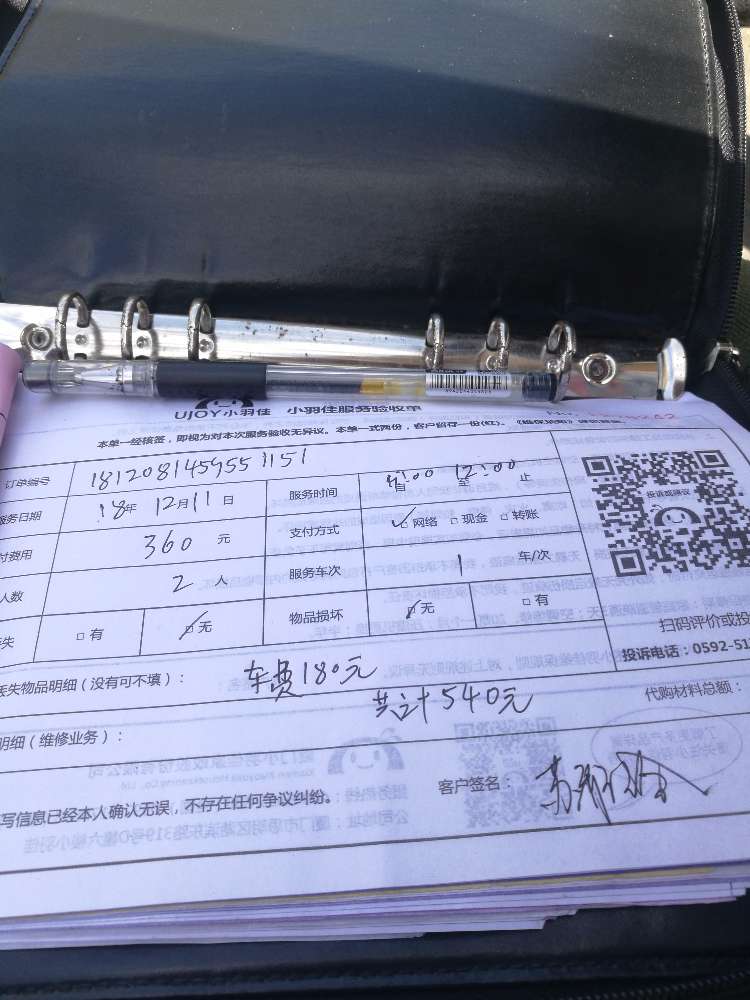 UJOY小羽佳 小羽佳服务验收单
本单一经核签，即视为对本次服务验收无异议。本单一式两份，客户留存一份(红)。
订单编号 181208145955 1151
服务日期 18年 12月11日 服务时间 自 至 12:00 止
付费用 360 元 支付方式 ☑网络 □现金 □转账
人数 2 人 服务车次 1 车/次
丢失 □有 ☑无 物品损坏 ☑无 □有
投诉或建议
扫码评价或投
投诉电话：0592-51
丢失物品明细（没有可不填）： 车费180元
共计540元
代购材料总额：
明细（维修业务）：
写信息已经本人确认无误，不存在任何争议纠纷。 客户签名：